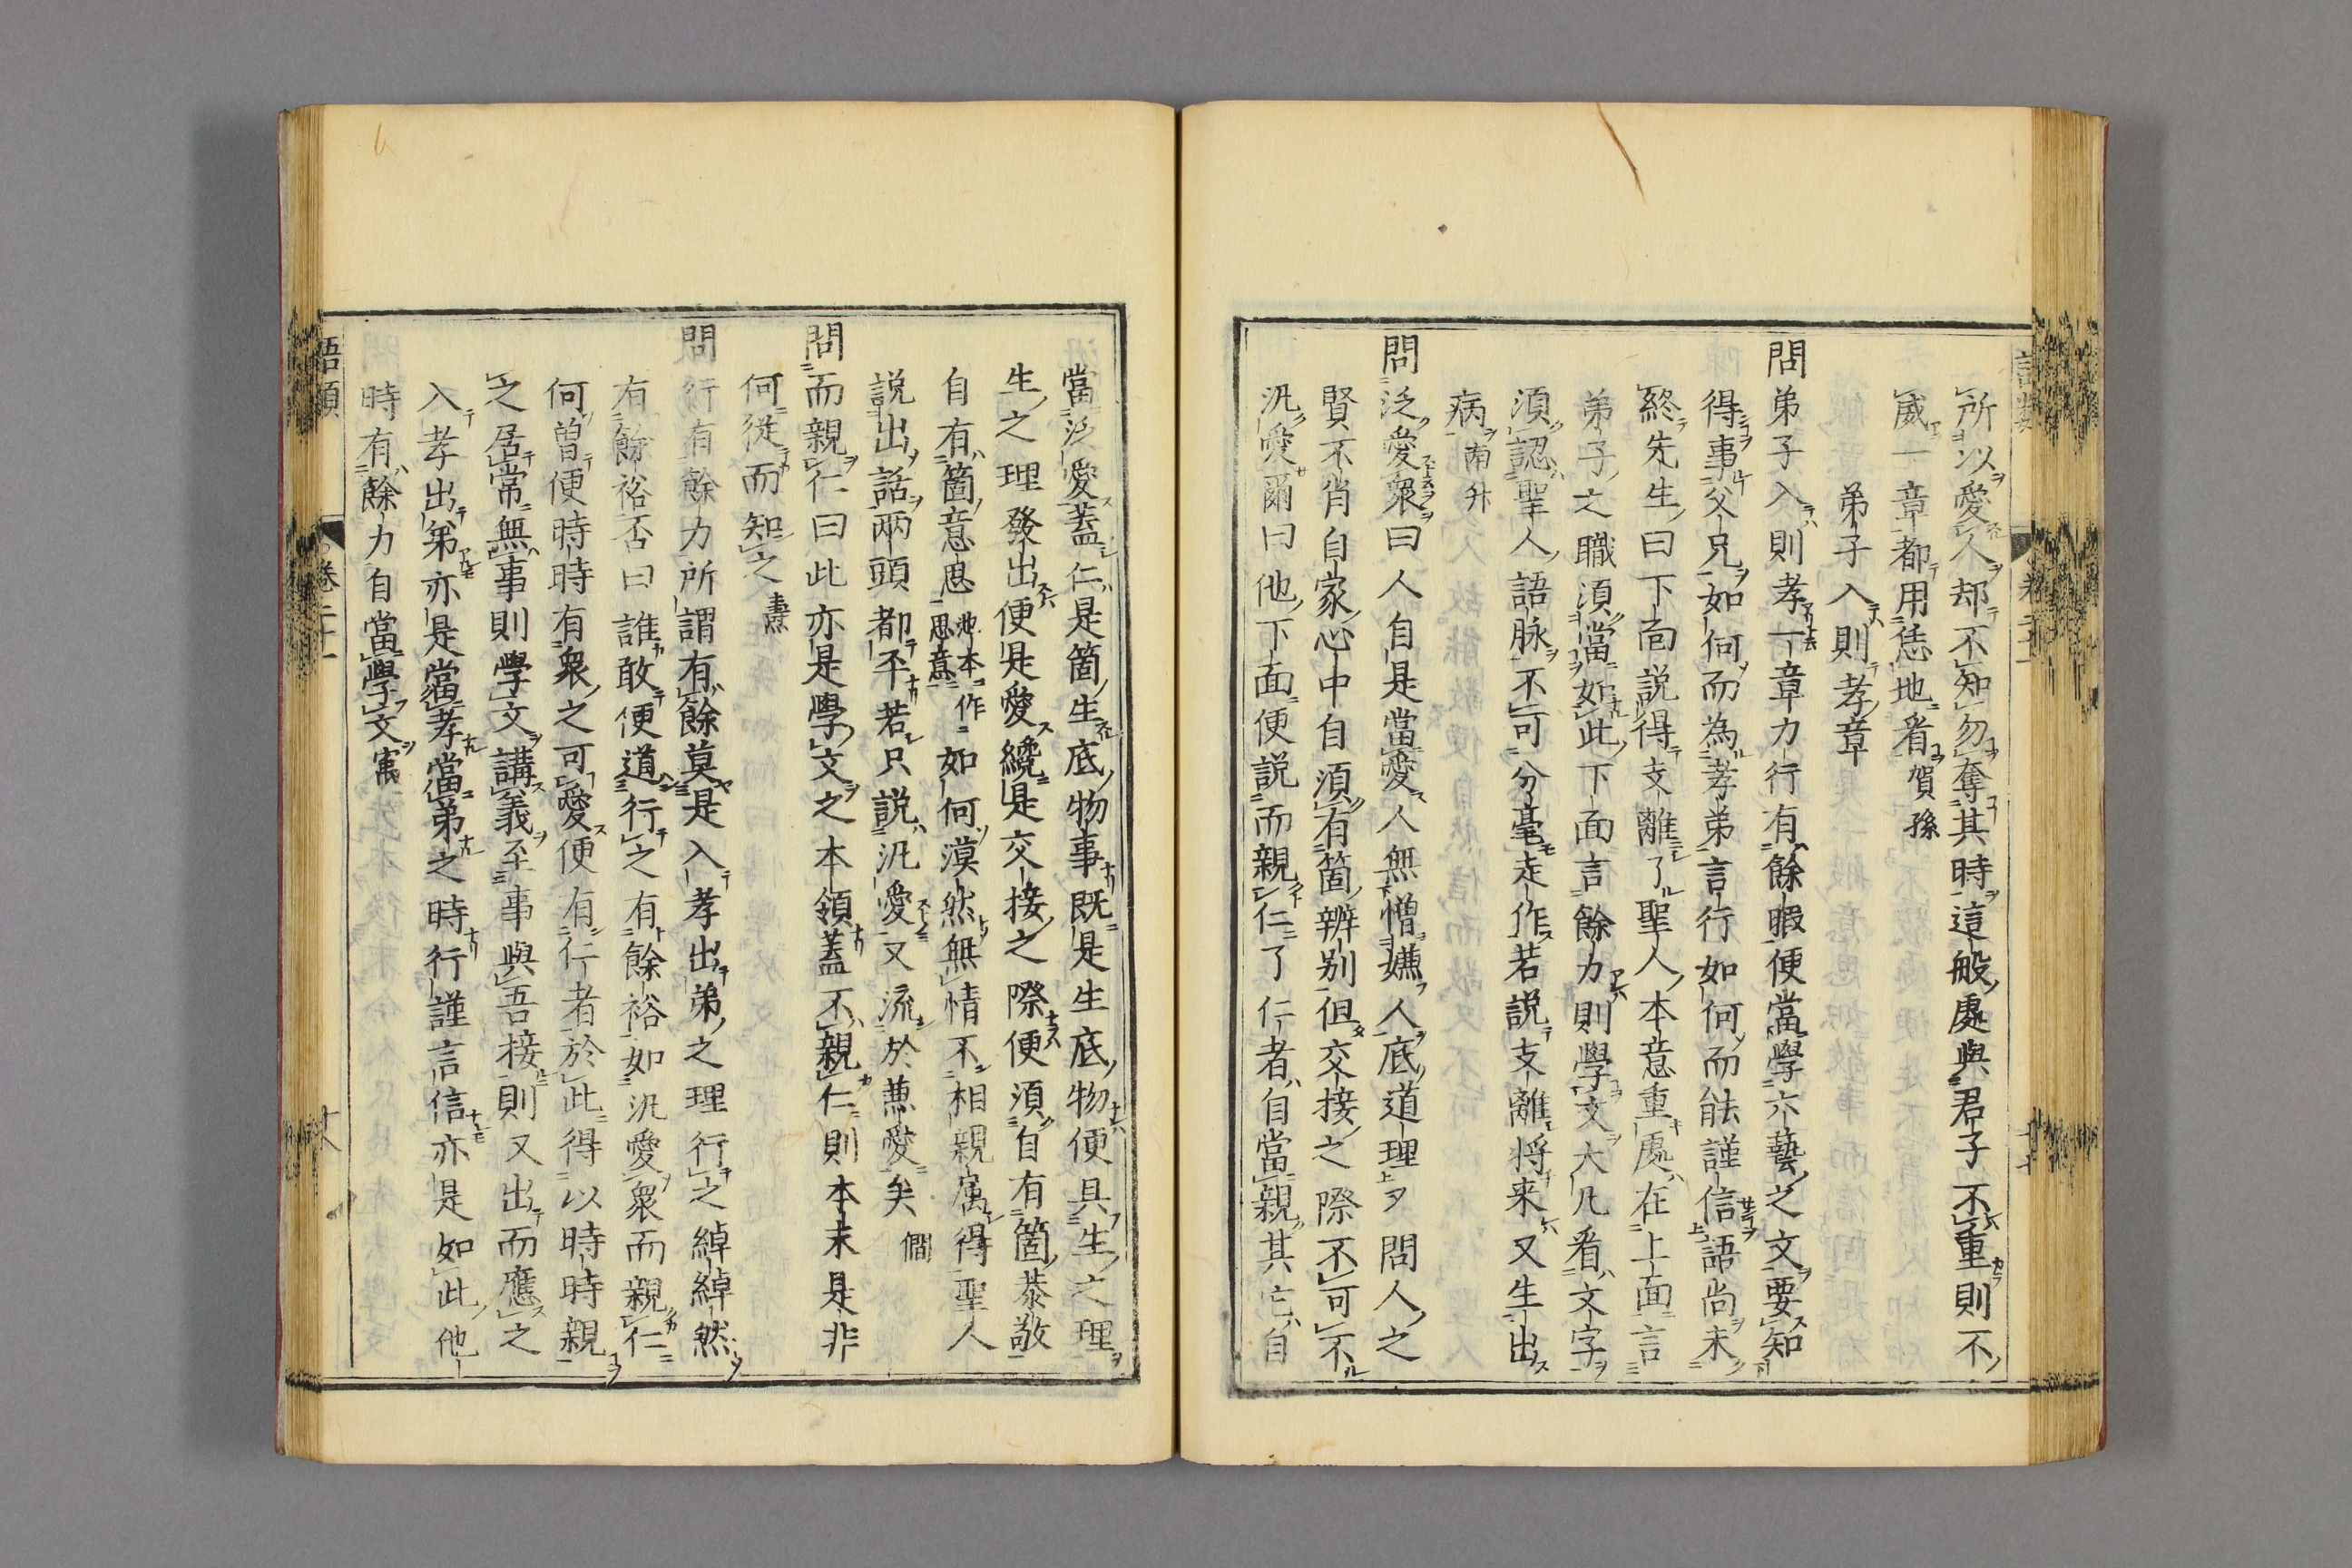 所以愛人却不知勿奪其時這般處與君子不重則不
威一章都用恁地看賀孫
弟子入則孝章
問弟子入則孝一章力行有餘暇便當學六藝之文要知
得事父兄如何而為孝弟言行如何而能謹信語尚未
終先生曰下面說得支離了聖人本意重處在上面言
弟子之職須當如此下面言餘力則學文大凡看文字
須認聖人語脉不可分毫走作若說支離將来又生出
病南升
問泛愛衆曰人自是當愛人無憎嫌人底道理又問人之
賢不肖自家心中自須有箇辨別但交接之際不可不
汎愛爾曰他下面便說而親仁了仁者自當親其它自
當泛愛蓋仁是箇生底物事既是生底物便具生之理
生之理發出便是愛纔是交接之際便須自有箇恭敬
自有箇意思池本作思意如何漠然無情不相親属得聖人
說出話兩頭都平若只說汎愛又流於蒹愛矣僩
問而親仁曰此亦是學文之本領蓋不親仁則本末是非
何從而知之燾
問行有餘力所謂有餘莫是入孝出弟之理行之綽綽然
有餘裕否曰誰敢便道行之有餘裕如汎愛衆而親仁
何曽便時時有衆之可愛便有仁者於此得以時時親
之居常無事則學文講義至事與吾接則又出而應之
入孝出弟亦是當孝當弟之時行謹言信亦是如此他
時有餘力自當學文寓
語類 卷二十一 十八